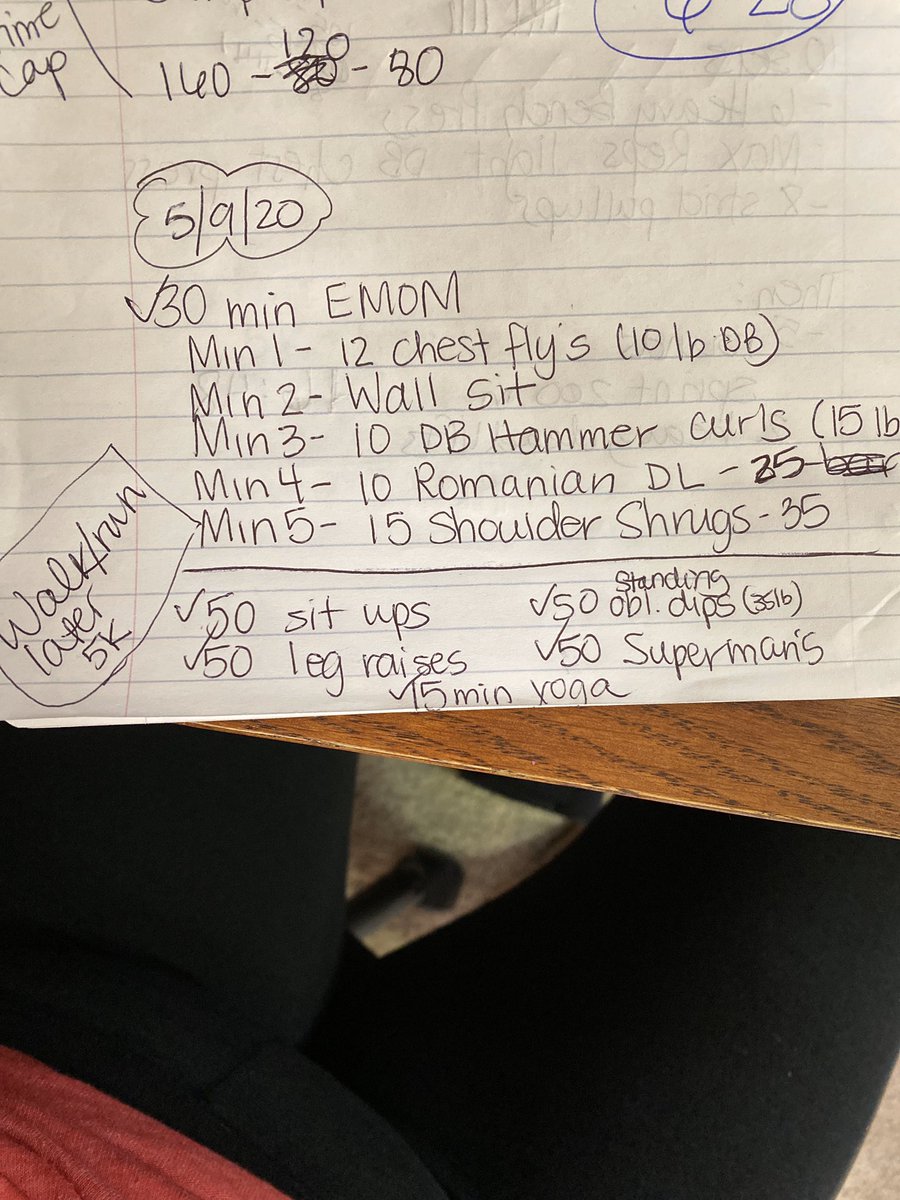 ime
Cap
140 - 120 - 80
5/9/20
√30 min EMOM
Min 1 - 12 chest fly's (10 lb DB)
Min 2 - Wall sit
Min 3 - 10 DB Hammer curls (15 lb
Min 4 - 10 Romanian DL - 35
Min 5 - 15 Shoulder Shrugs - 35
Walk/run
later
5K
√50 sit ups
√50 leg raises
√50 Standing obl. dips (35lb)
√50 Superman's
√15 min yoga